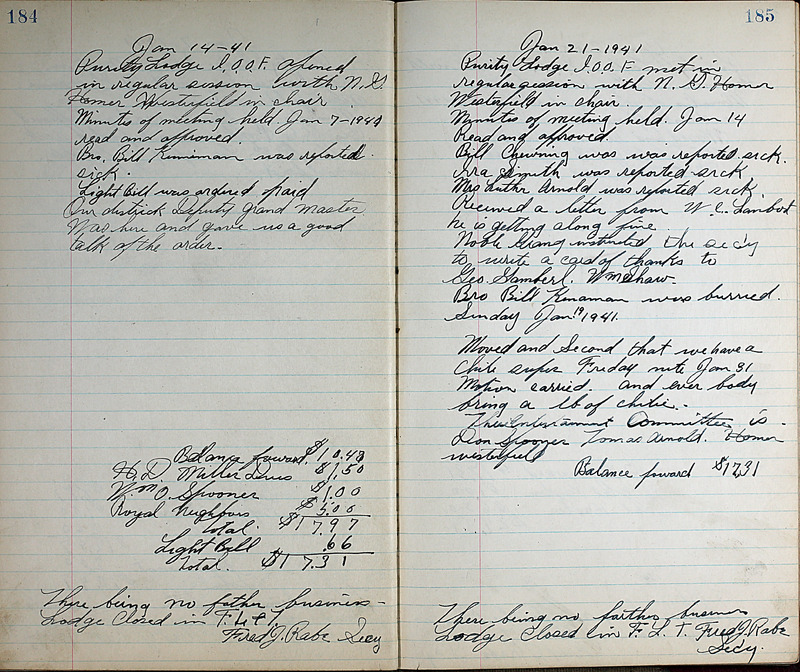 184
Jan 14-41
Purity Lodge I.O.O.F. opened
in regular session with N.G.
Homer Westerfield in chair
Minutes of meeting held Jan 7-1941
read and approved.
Bro. Bill Kinneman was reported
sick.
Light Bill was ordered paid
Our district Deputy Grand Master
Was here and gave us a good
talk of the order.
Balance foward $10.48
H.D. Miller Dues $1.50
Wm. O. Spooner $1.00
Royal Neighbors $5.00
total. $17.97
Light Bill .66
total. $17.31
There being no father business
Lodge Closed in F. L & T.
Fred J. Rabe Secy
185
Jan 21-1941
Purity Lodge I.O.O.F met in
regular session with N.G. Homer
Westerfield in chair.
Minutes of meeting held. Jan 14
Read and approved.
Bill Chewning was was reported sick.
Ira Smith was reported sick
Mrs Luthr Arnold was reported sick.
Received a letter from W.C. Lambert
he is getting along fine.
Noble Grang instructed the secy
to write a card of thanks to
Geo. Lambert. Wm Shaw.
Bro Bill Kinaman was burried.
Sunday Jan. 19 1941.
Moved and Second that we have a
Chile super Friday nite Jan 31
Motion carried. and ever body
bring a lb of chilie.
Entertainment Committee is
Don Spooner Tomas Arnold. Homer
westerfield
Balance foward $17.31
There being no farther business
Lodge Closed in F. L. T. Fred J. Rabe
Secy.